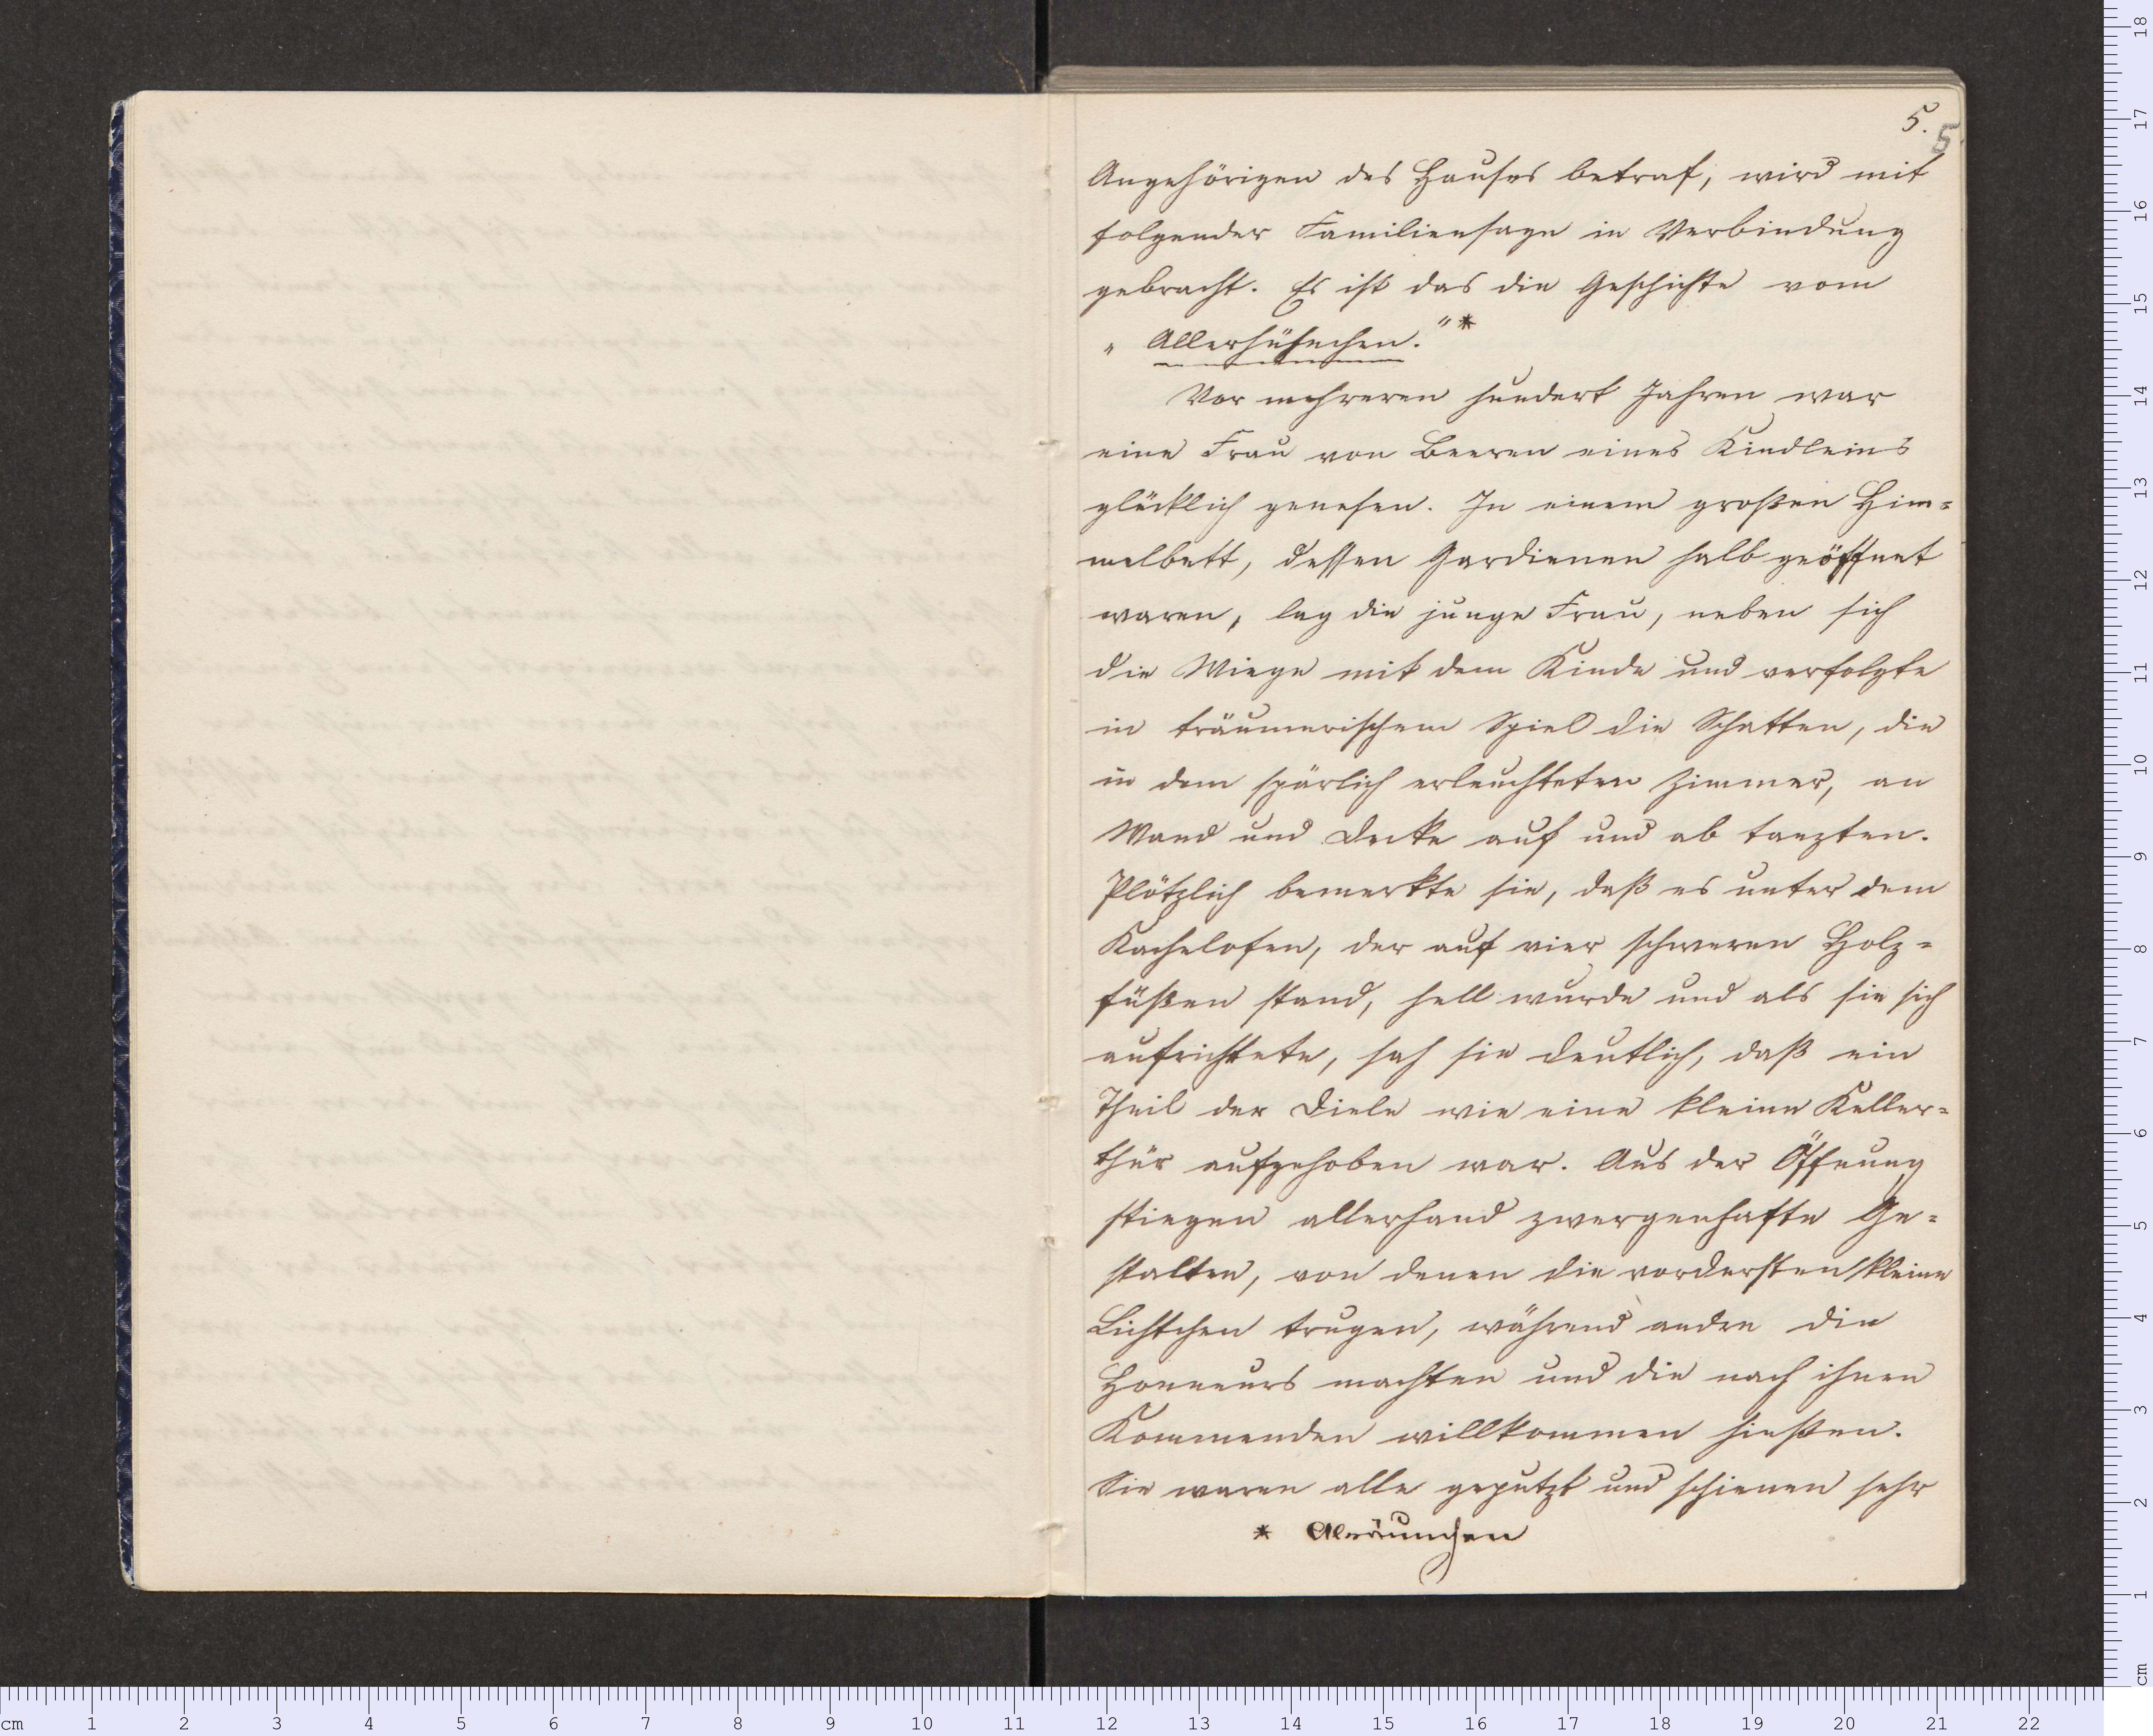 5.
5
Angehörigen des Hauses betraf, wird mit
folgender Familiensage in Verbindung
gebracht. Es ist das die Geschichte vom
„Allerhühnchen."*
Vor mehreren hundert Jahren war
eine Frau von Beeren eines Kindleins
glücklich genesen. In einem großen Him=
melbett, dessen Gardienen halb geöffnet
waren, lag die junge Frau, neben sich
die Wiege mit dem Kinde und verfolgte
in träumerischem Spiel die Schatten, die
in dem spärlich erleuchteten Zimmer, an
Wand und Decke auf und ab tanzten.
Plötzlich bemerkte sie, daß es unter dem
Kachelofen, der auf vier schweren Holz=
füßen stand, hell wurde und als sie sich
aufrichtete, sah sie deutlich, daß ein
Theil der Diele wie eine kleine Keller=
thür aufgehoben war. Aus der Öffnung
stiegen allerhand zwergenhafte Ge=
stalten, von denen die vordersten kleine
Lichtchen trugen, während andre die
Honneurs machten und die nach ihnen
Kommenden willkommen hießen.
Sie waren alle geputzt und schienen sehr
* Alräunchen